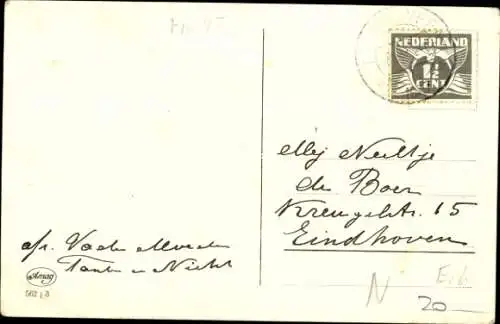 NEDERLAND
1½
CENT
Mej Neeltje
de Boer
Kreugelstr. 15
Eindhoven
afz. Vader Moeder
Tante en Nicht
Amag
562 | 3
N
20-